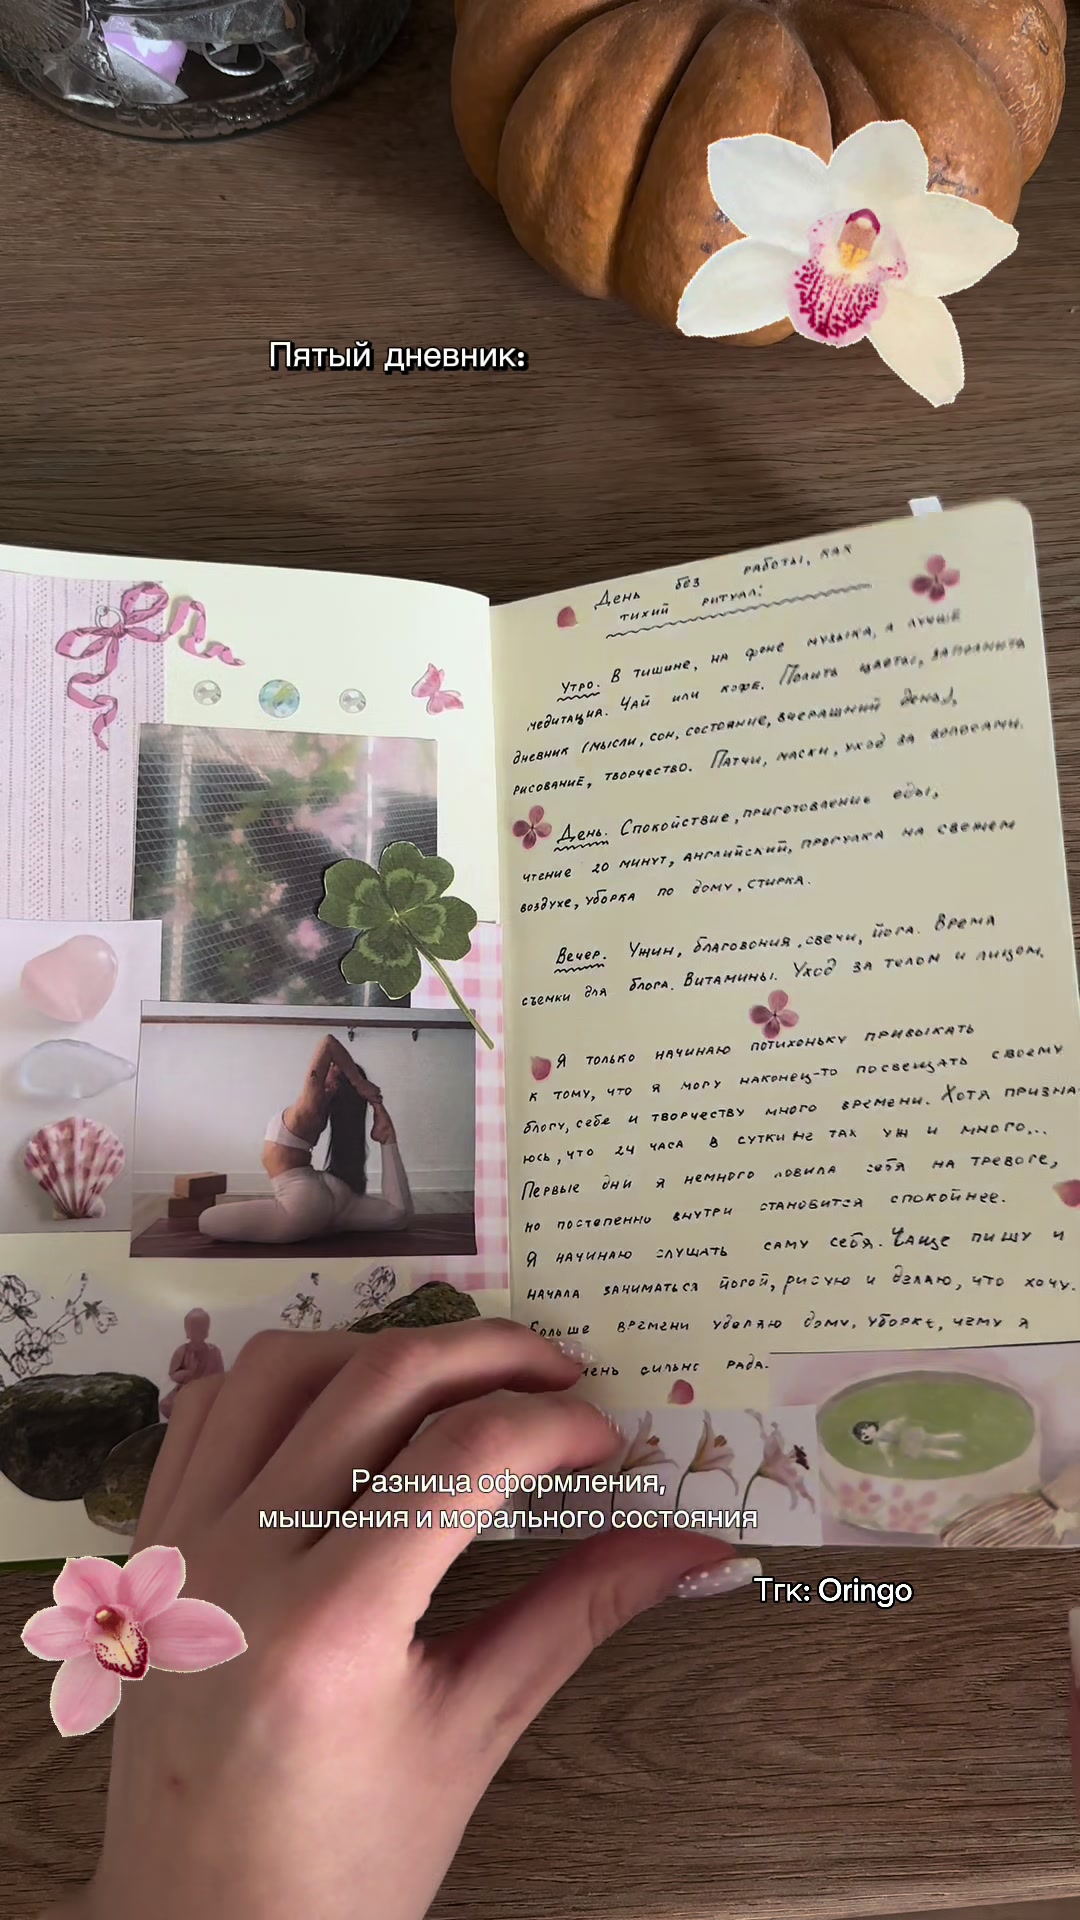 Пятый дневник:
День без работы, как
тихий ритуал:
Утро. В тишине, на фоне музыка, а лучше
медитация. Чай или кофе. Полить цветы, заполнить
дневник (мысли, сон, состояние, вчерашний день),
рисование, творчество. Патчи, маски, уход за волосами.
День. Спокойствие, приготовление еды,
чтение 20 минут, английский, прогулка на свежем
воздухе, уборка по дому, стирка.
Вечер. Ужин, благовония, свечи, йога. Время
съемки для блога. Витамины. Уход за телом и лицом.
Я только начинаю потихоньку привыкать
к тому, что я могу наконец-то посвещать своему
блогу, себе и творчеству много времени. Хотя призна
юсь, что 24 часа в сутки не так уж и много...
Первые дни я немного ловила себя на тревоге,
но постепенно внутри становится спокойнее.
Я начинаю слушать саму себя. Чаще пишу и
начала заниматься йогой, рисую и делаю, что хочу.
Больше времени уделяю дому, уборке, чему я
сильно рада.
Разница оформления,
мышления и морального состояния
Тгк: Oringo